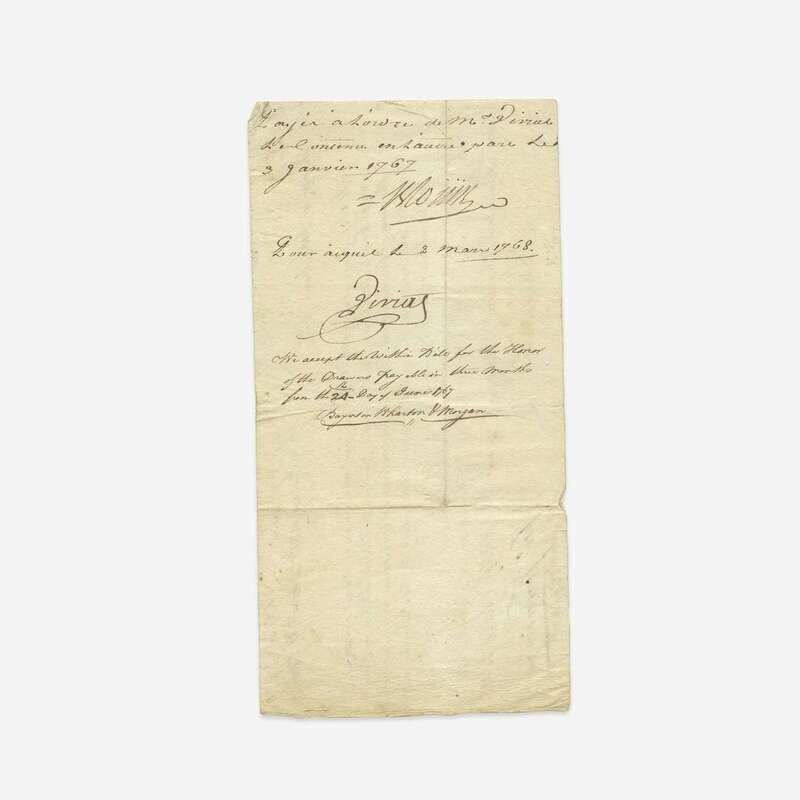 Payéz a Lordre de Mr. Viviat
Le Contenu
3 Janvier 1767
Pour acquit Le 2 Mars 1768.
Viviat
We accept the within Bill for the Honor
of the Drawer Payable in three Months
from the 24th Day of June 1767
Baynton Wharton & Morgan